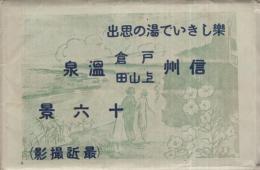 樂しきいで湯の思出
信州 戸倉 上山田 溫泉
十六景
(最近撮影)